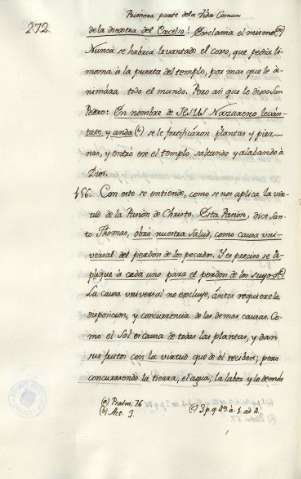 Primera parte de la Vida Comun
272
de la diestra del Excelso! Exclamia el mismo (a)
Nunca se habria levantado el coxo, que pedia li
mosna à la puerta del templo, por mas que lo a
nimàra todo el mundo. Pero asi que le dixo San
Pedro: En nombre de Jesus Nazareno leván
tate, y anda (b) se le fortificáron plantas y pier
nas, y entró en el templo saltando y alabando à
Dios.
456. Con esto se entiende, como se nos aplica la vir
tud de la Pasion de Christo. Esta Pasion, dice San
to Thomas, obró nuestra salud, como causa uni
versal del perdon de los pecados. Y es preciso se a
plique à cada uno para el perdon de los suyos (c)
La causa universal no excluye, ántes requiere la
disposicion, y concurrencia de las demas causas. Co
mo el Sol es causa de todas las plantas, y dan
sus frutos con la virtud que de él reciben; pero
concurriendo la tierra, el agua, la labor y lo demás
(a) Psalm. 76
(b) Act. 3
(c) 3 p. q. 49 a. 1. ad 4.